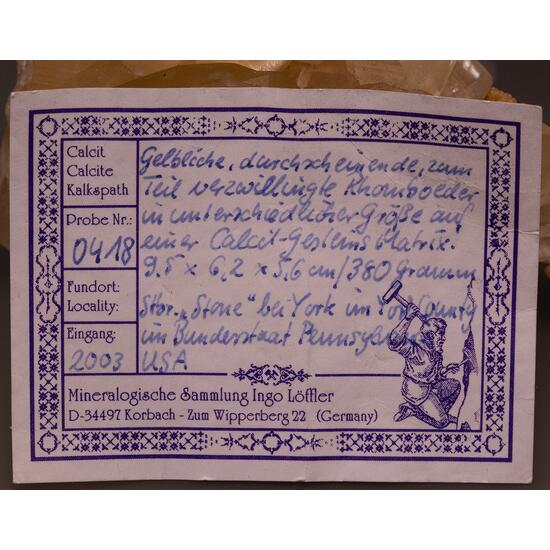 Calcit
Calcite
Kalkspath
Gelbliche, durchscheinende, zum
Teil verzwillingte Rhomboeder
in unterschiedlicher Größe auf
einer Calcit-Gesteins Matrix.
9,5 x 6,2 x 5,6 cm / 380 Gramm
Probe Nr.:
0418
Fundort:
Locality:
Stbr. „Stone" bei York im York County
im Bundesstaat
USA
Eingang:
2003
Mineralogische Sammlung Ingo Löffler
D-34497 Korbach - Zum Wipperberg 22 (Germany)